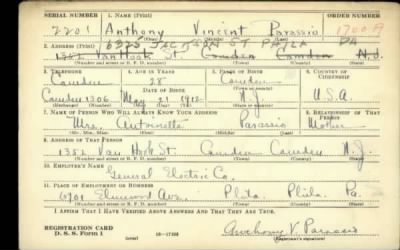 SERIAL NUMBER 1. NAME (Print) ORDER NUMBER
2201 Anthony Vincent Parassio 1700A
(First) (Middle) (Last)
6325 JACKSON ST PHILA PA
2. ADDRESS (Print)
1352 Van Hook St. Camden Camden N.J.
(Number and street or R. F. D. number) (Town) (County) (State)
3. TELEPHONE 4. AGE IN YEARS 5. PLACE OF BIRTH 6. COUNTRY OF CITIZENSHIP
Camden 28 Camden
DATE OF BIRTH
Camden 1306 May 21 1912 N.J. U.S.A.
(Exchange) (Number) (Mo.) (Day) (Yr.) (State or country)
7. NAME OF PERSON WHO WILL ALWAYS KNOW YOUR ADDRESS 8. RELATIONSHIP OF THAT PERSON
Mrs. Antoinette Parassio Mother
(Mr., Mrs., Miss) (First) (Middle) (Last)
9. ADDRESS OF THAT PERSON
1352 Van Hook St. Camden Camden N.J.
(Number and street or R. F. D. number) (Town) (County) (State)
10. EMPLOYER'S NAME
General Electric Co.
11. PLACE OF EMPLOYMENT OR BUSINESS
6901 Elmwood Ave. Phila. Phila. Pa.
(Number and street or R. F. D. number) (Town) (County) (State)
I AFFIRM THAT I HAVE VERIFIED ABOVE ANSWERS AND THAT THEY ARE TRUE.
REGISTRATION CARD
D. S. S. Form 1 16—17105 Anthony V. Parassio
(Registrant's signature)